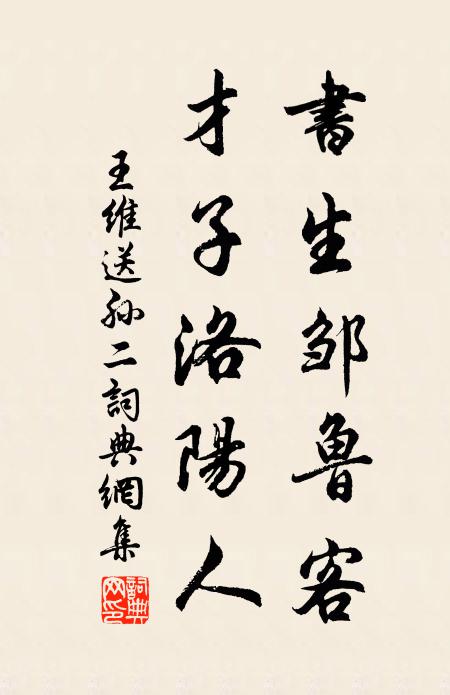 書生邹魯客
才子洛陽人
王維送孙二詞典網集
詞典网印